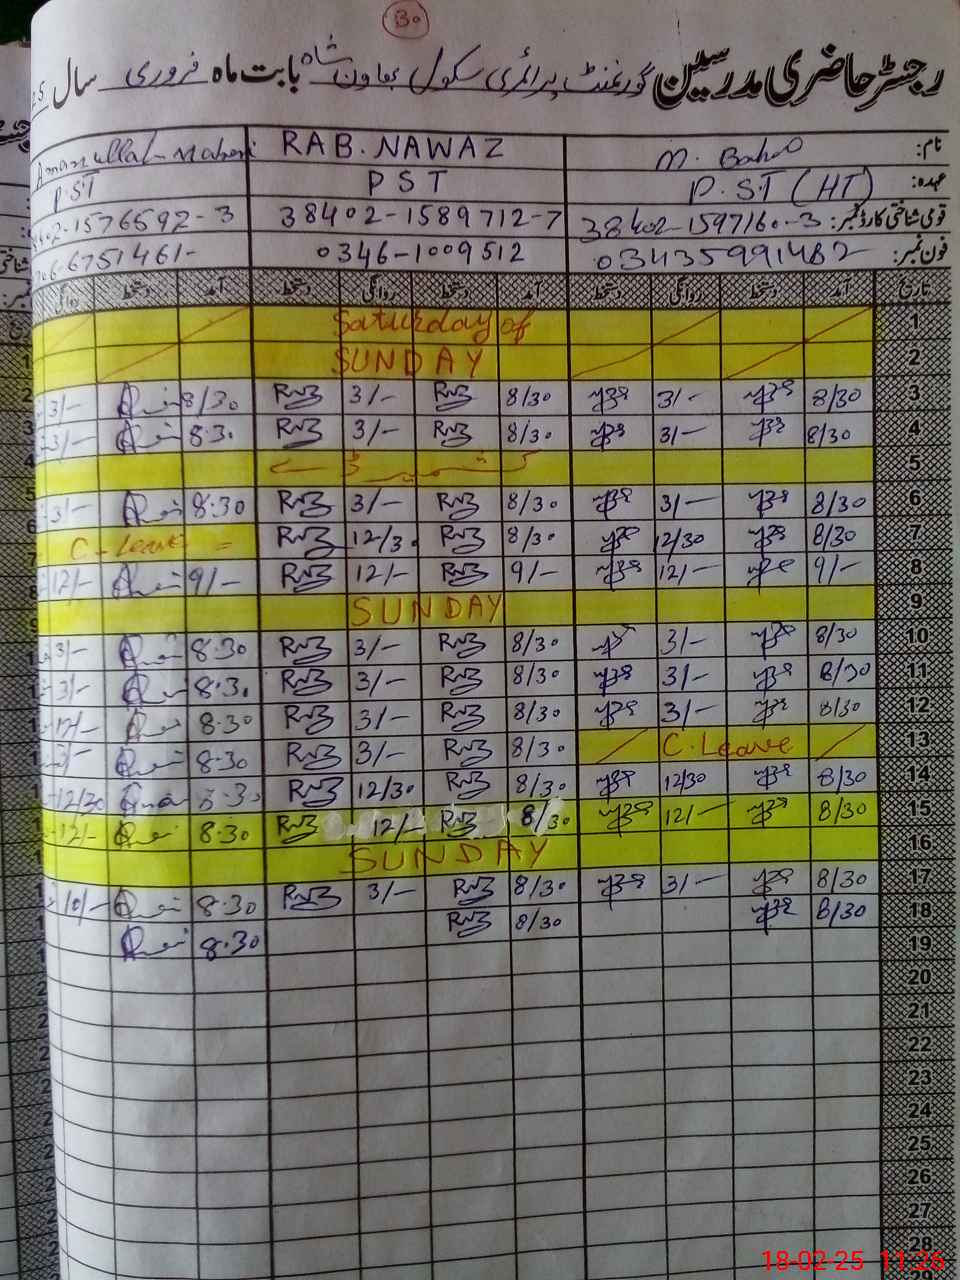 30
رجسٹر حاضری مدرسین گورنمنٹ پرائمری سکول بھاون شاہ بابت ماہ فروری سال
نام: M. Bahoo RAB.NAWAZ Amanullah
عہدہ: P.ST (HT) PST P.ST
قومی شناختی کارڈ نمبر: 38402-1597160-3 38402-1589712-7 402-1576592-3
فون نمبر: 03435991482 0346-1009512 06-6751461-
تاریخ آمد دستخط روانگی دستخط آمد دستخط روانگی دستخط آمد دستخط روانگی
1 Saturday of
2 SUNDAY
3 8/30 3/- 8/30 RNZ 3/- RNZ 8/30 3/-
4 8/30 3/- 8/30 RNZ 3/- RNZ 8.30 3/-
5 کشمیر ڈے
6 8/30 3/- 8/30 RNZ 3/- RNZ 8.30 3/-
7 8/30 12/30 8/30 RNZ 12/30 RNZ C-Leave
8 9/- 12/- 9/- RNZ 12/- RNZ 9/- 12/-
9 SUNDAY
10 8/30 3/- 8/30 RNZ 3/- RNZ 8.30 3/-
11 8/30 3/- 8/30 RNZ 3/- RNZ 8.30 3/-
12 8/30 3/- 8/30 RNZ 3/- RNZ 8.30
13 C.Leave 8/30 RNZ 3/- RNZ 8.30 3/-
14 8/30 12/30 8/30 RNZ 12/30 RNZ 8.30 12/30
15 8/30 12/- 8/30 RNZ 12/- RNZ 8.30 12/-
16 SUNDAY
17 8/30 3/- 8/30 RNZ 3/- RNZ 8.30
18 8/30 8/30 RNZ 8.30
19
20
21
22
23
24
25
26
27
28
29
18-02-25 11:26